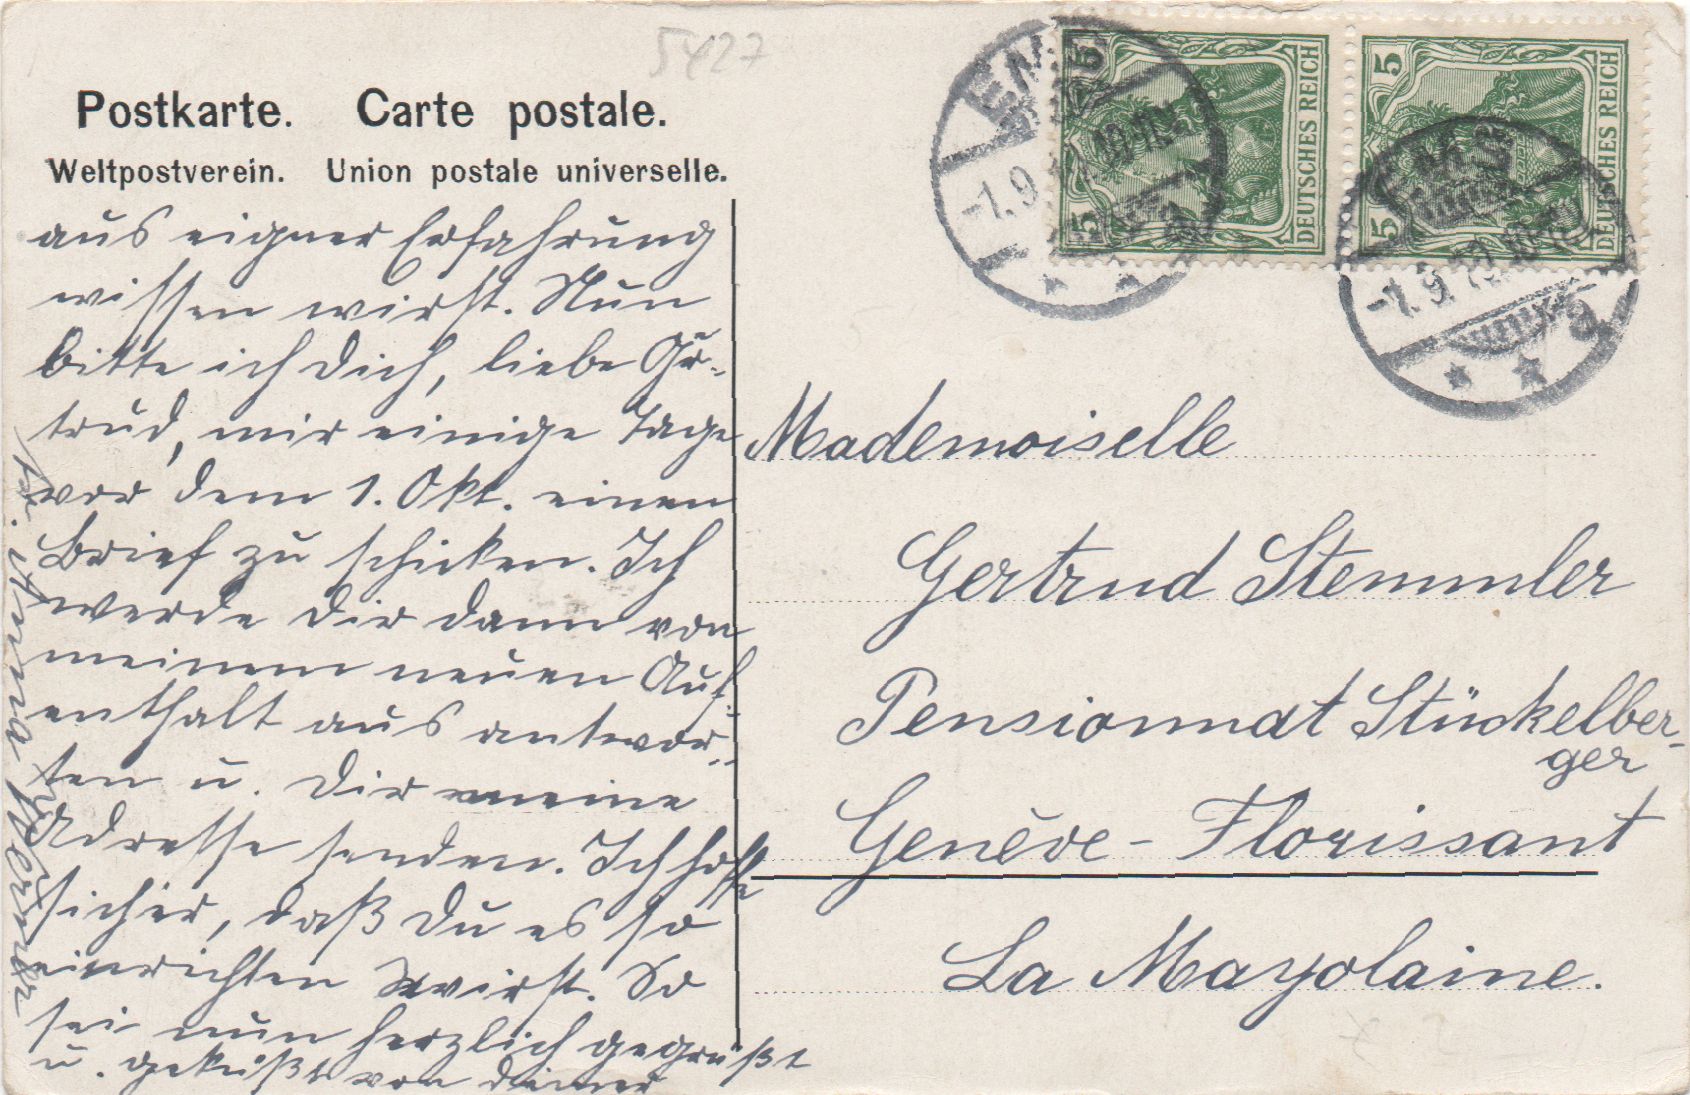 5427
Postkarte. Carte postale.
Weltpostverein. Union postale universelle.
aus eigner Erfahrung
wissen wirst. Nun
bitte ich Dich, liebe Ger-
trud, mir einige Tage
vor dem 1. Okt. einen
Brief zu schicken. Ich
werde Dir dann von
meinem neuen Auf-
enthalt aus antwor-
ten u. Dir meine
Adresse senden. Ich hoffe
sicher, daß Du es so
einrichten wirst. So
sei nun herzlich gegrüßt
u. geküßt von Deiner
Anna
5
5
DEUTSCHES REICH
5
5
DEUTSCHES REICH
EMS
-1.9.
EMS
-1.9.
Mademoiselle
Gertrud Stemmler
Pensionnat Stückelber-
ger
Genève - Florissant
La Mayolaine.